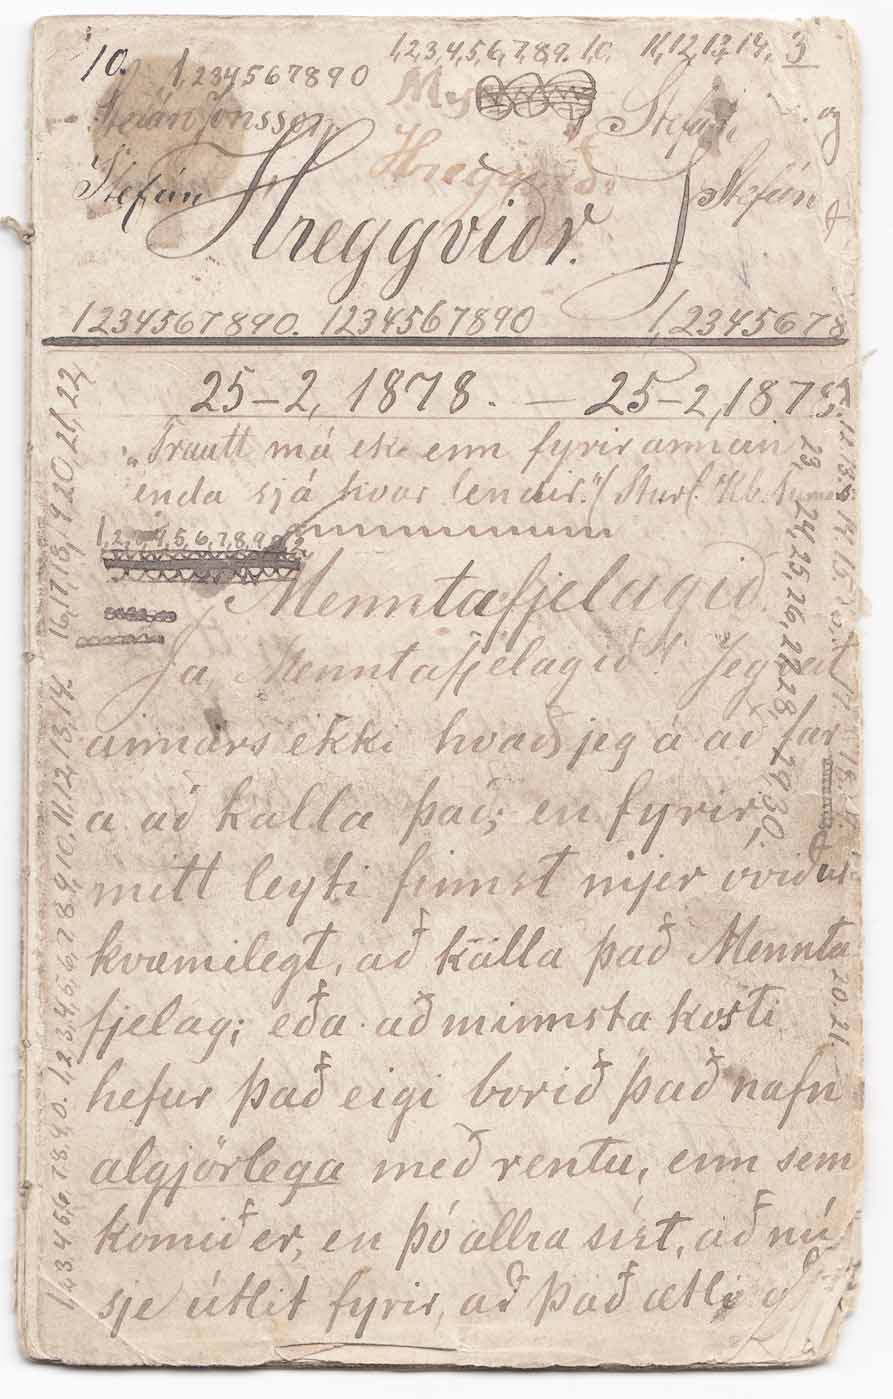 10.
1,2,3,4,5,6,7,8,9. 1,0, 11,12,13,14, 3
1,234567890
Stefán Jónsson
Stefán
og
Hreggviðr.
Stefán
Hreggviðr.
Stefán
1234567890. 1234567890 1,2345678
25–2, 1878. — 25–2, 187
„Trautt má ek enn fyrir annan
enda sjá hvar lendir.“/ Sturl. Kb.
1,2,3,4,5,6,7,8,9
Menntafjelagið.
Ja, Menntafjelagið! Jeg
annars ekki hvað jeg á að far
a að kalla það; en fyrir
mitt leyti finnst mjer óviður
kvæmilegt, að kalla það Mennta
fjelag; eða að minnsta kosti
hefur það eigi borið það nafn
algjörlega með rentu, enn sem
komið er, en þó allra síst, að nú
sje útlit fyrir, að það ætli
1,2,3,4,5,6,7,8,9,10,11,12,13,14.
16,17,18,19,20,21,22,
23,24,25,26,27,28,29,30.
20.21.